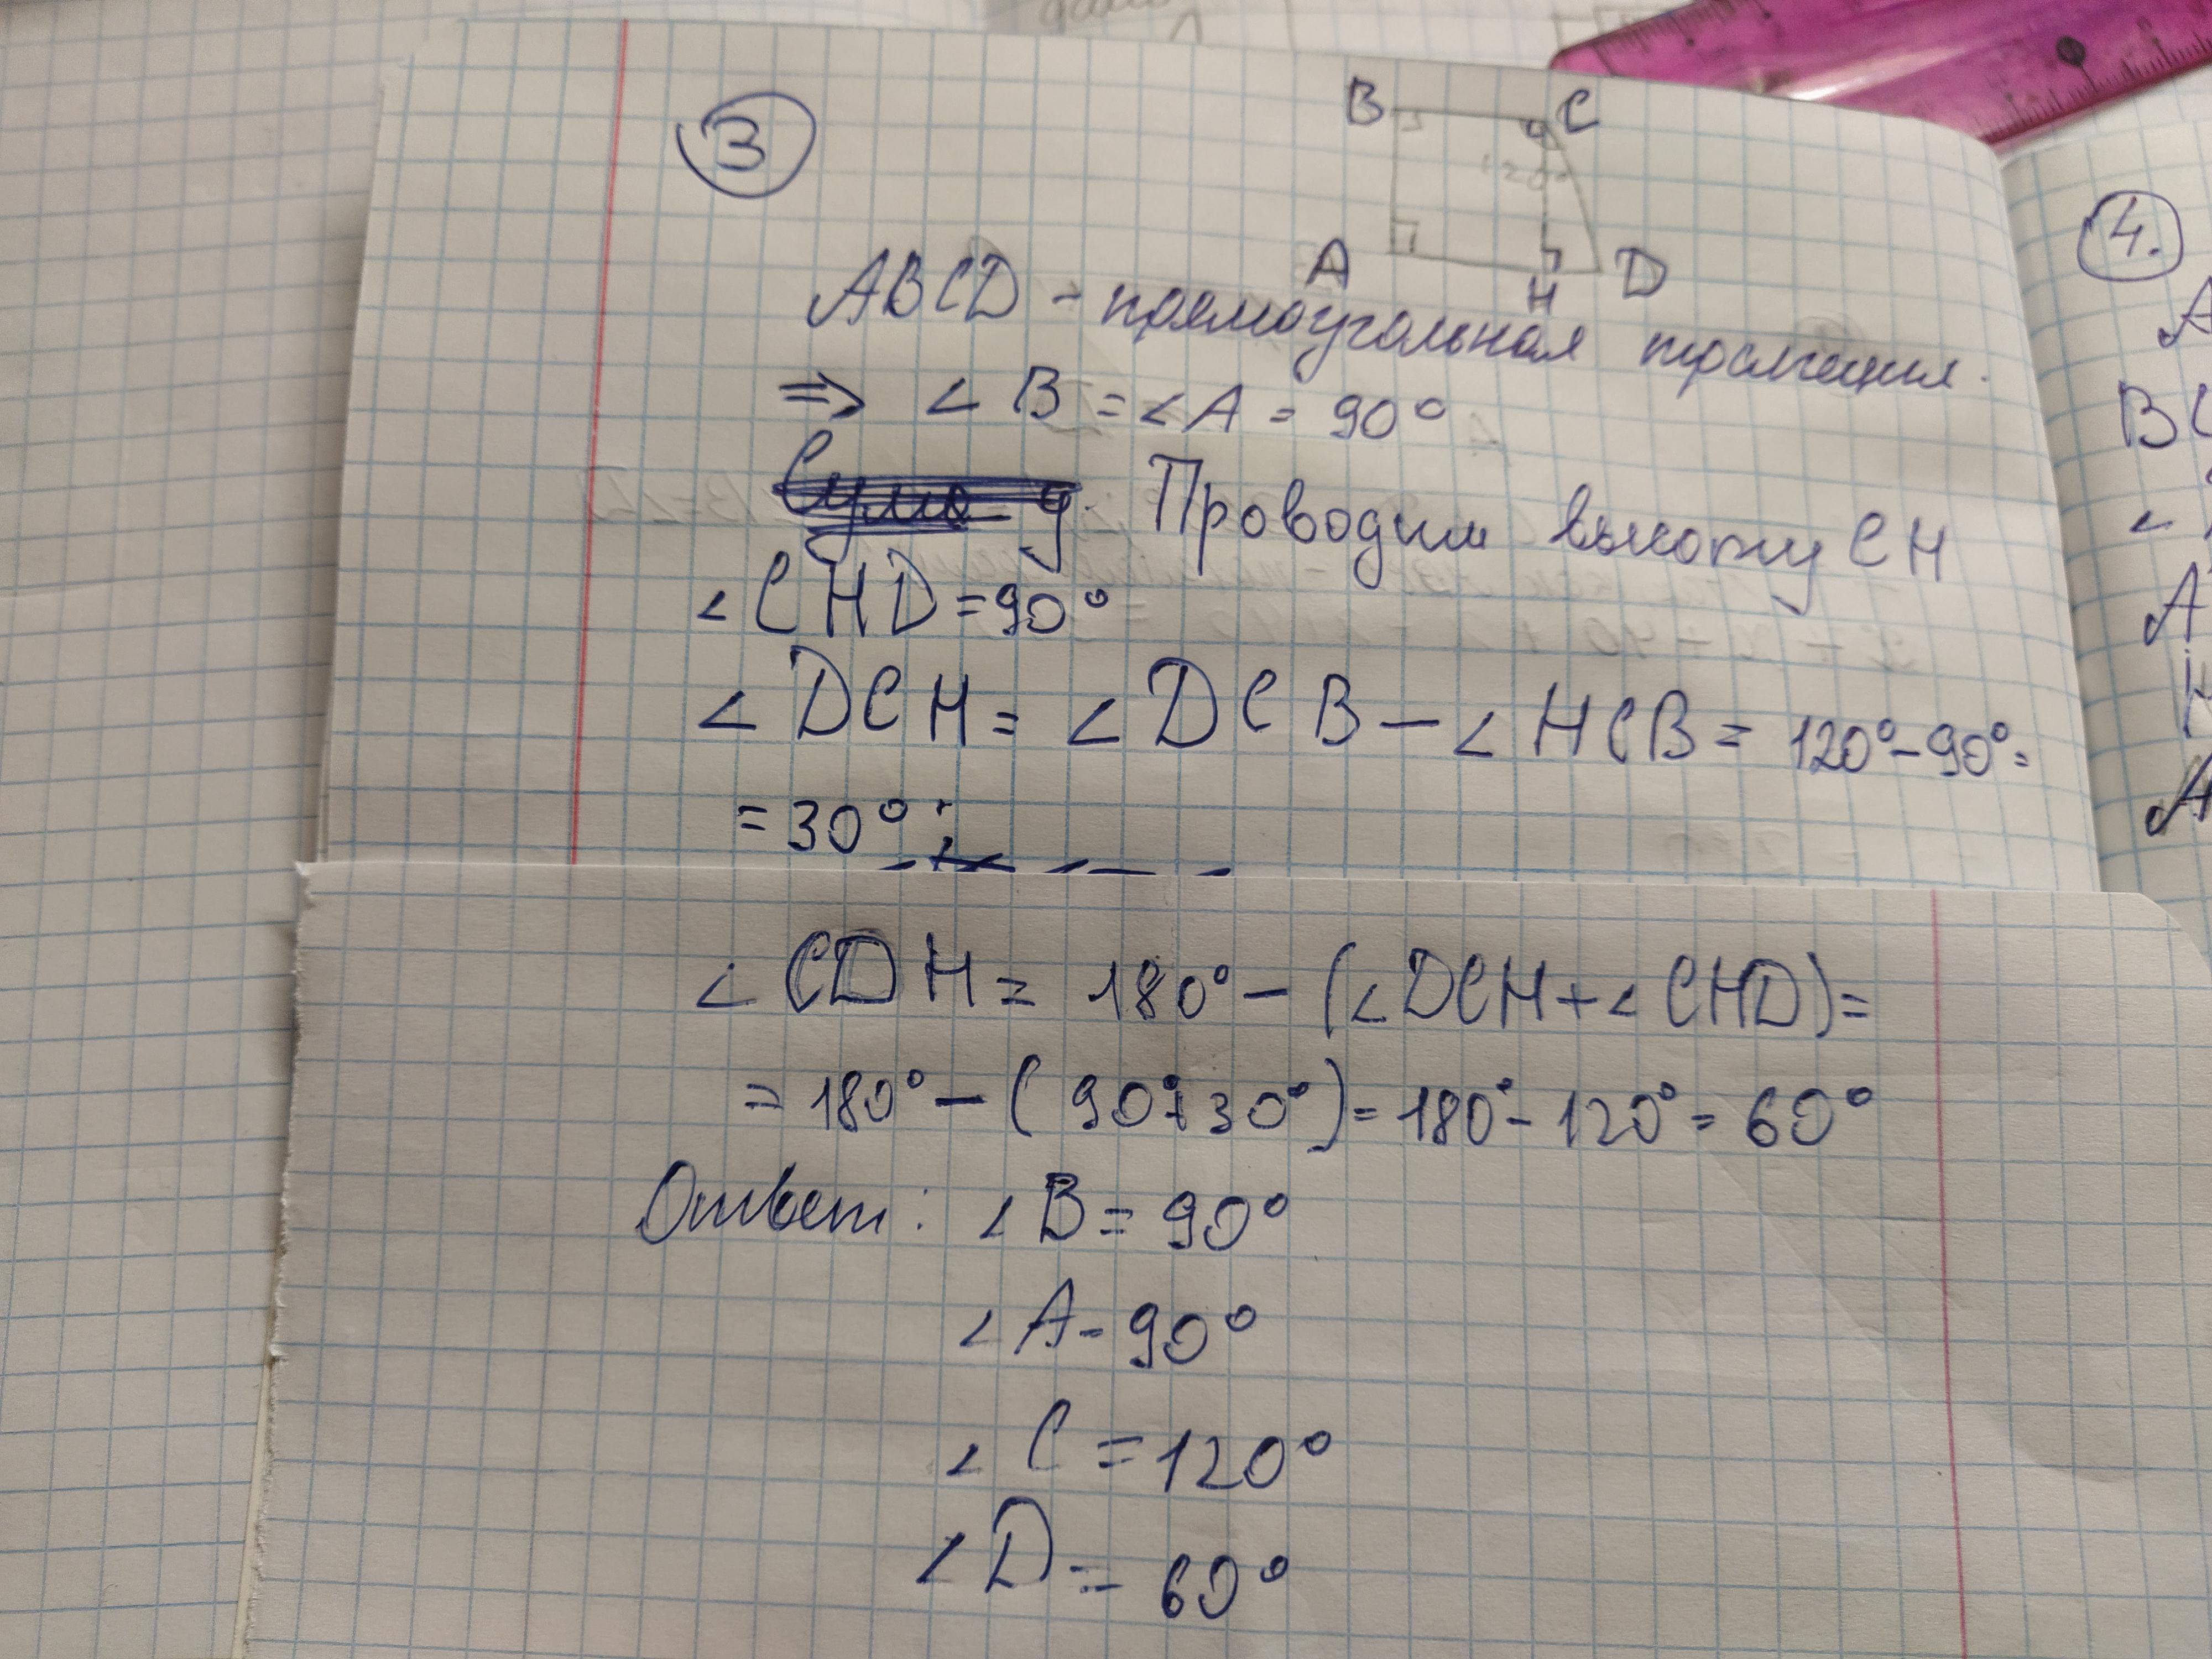 3
B C
120°
A H D
ABCD - прямоугольная трапеция.
⇒ ∠B = ∠A = 90°
Проводим высоту CH
∠CHD = 90°
∠DCH = ∠DCB - ∠HCB = 120° - 90° =
= 30°
∠CDH = 180° - (∠DCH + ∠CHD) =
= 180° - (90° + 30°) = 180° - 120° = 60°
Ответ: ∠B = 90°
∠A = 90°
∠C = 120°
∠D = 60°
4.
A
BC
A
H
A